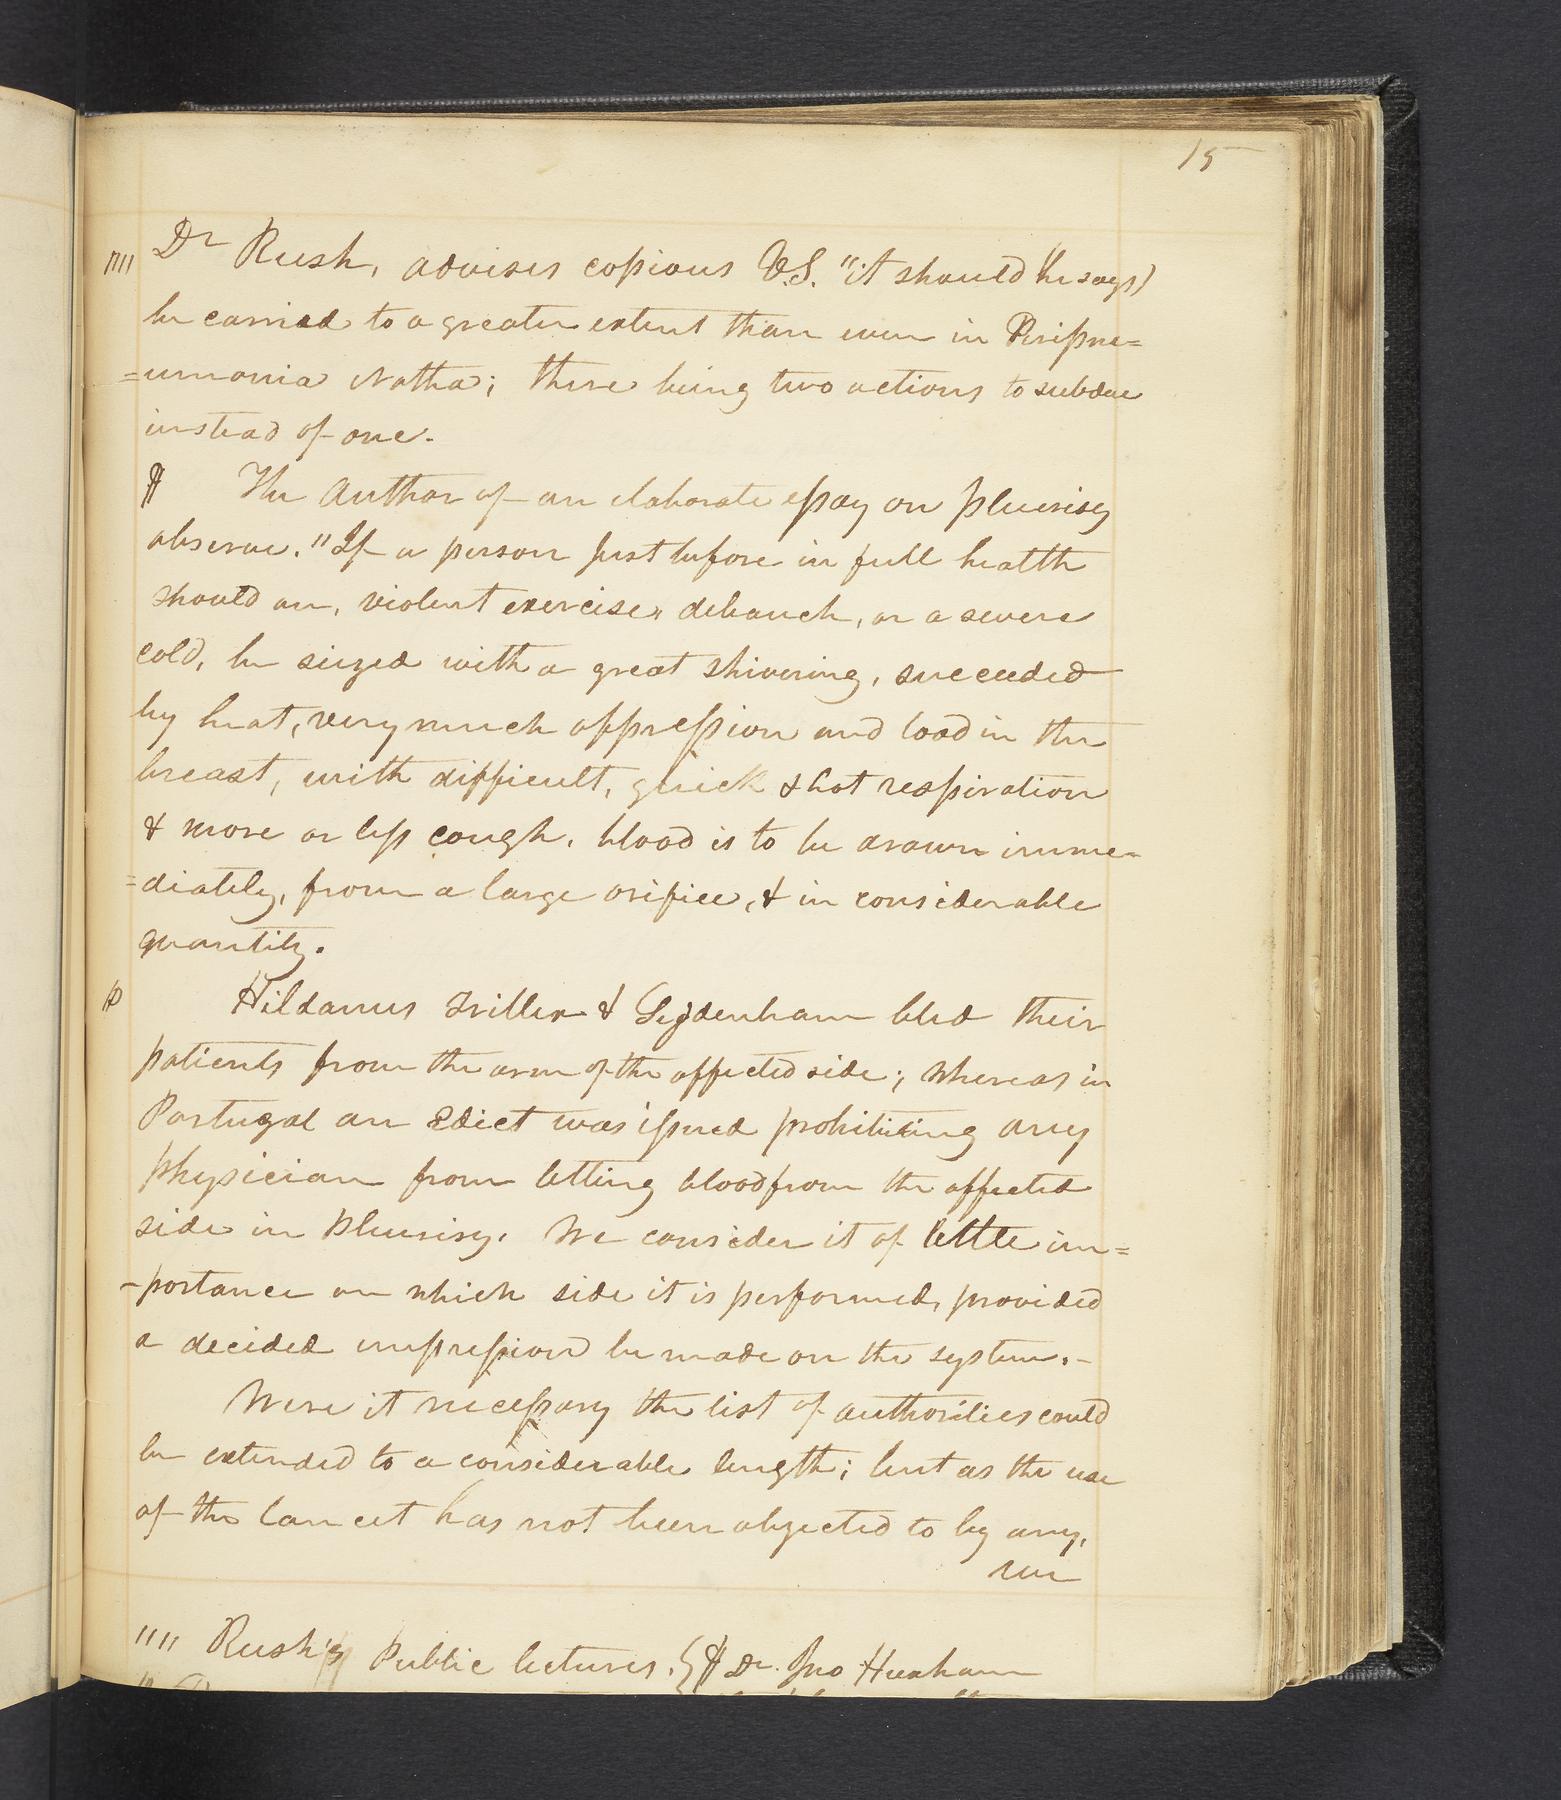 15
"""" Dr Rush, advises copious V.S. "it should (he says)
be carried to a greater extent than even in Peripne=
=umonia Notha; there being two actions to subdue
instead of one.
The Author of an elaborate essay on pleurisy
observe. "If a person just before in full health
should on, violent exercise, debauch, or a severe
cold, be siezed with a great shivering, succeeded
by heat, very much oppression and load in the
breast, with difficult, quick & hot respiration
& more or less cough, blood is to be drawn imme-
=diately, from a large orifice, & in considerable
quantity.
Hildanus Triller & Sydenham bled their
patients from the arm of the affected side; whereas in
Portugal an Edict was issued prohibiting any
physician from letting blood from the affected
side in pleurisy. We consider it of little im=
-portance on which side it is performed, provided
a decided impression be made on the system.-
Were it necessary the list of authorities could
be extended to a considerable length; but as the use
of the lancet has not been objected to by any,
we
"""" Rush's Public lectures. Dr. Jno Huxham